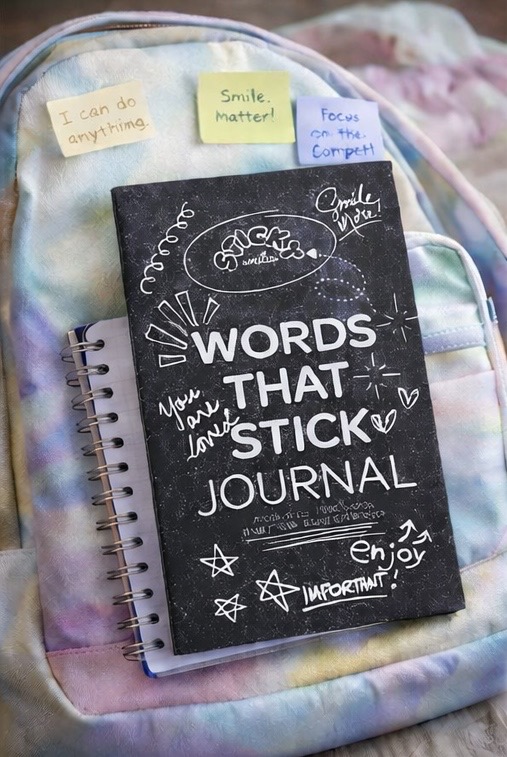 I can do
anything.
Smile.
Matter!
Focus
on the
Compet!
Smile
More!
STICKY
WORDS
THAT
STICK
JOURNAL
You
are
loved
enjoy
IMPORTANT!